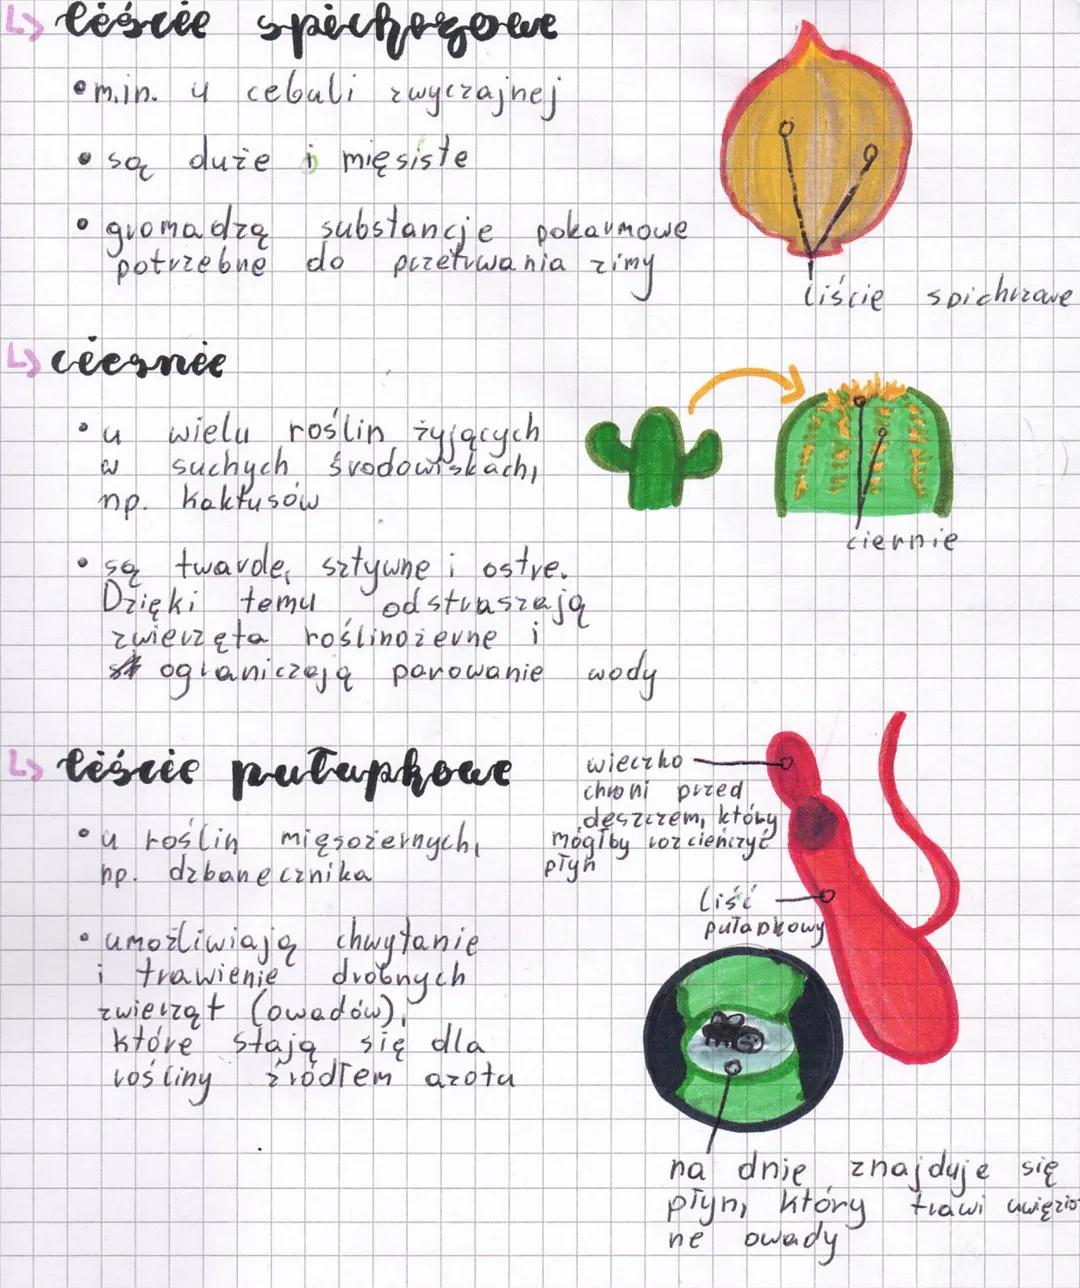 liście spichrzowe
• m.in. u cebuli zwyczajnej
• są duże i mięsiste
• gromadzą substancje pokarmowe
potrzebne do przetrwania zimy
liście spichrzowe
ciernie
• u wielu roślin żyjących
w suchych środowiskach,
np. kaktusów
ciernie
• są twarde, sztywne i ostre.
Dzięki temu odstraszają
zwierzęta roślinożerne i
ograniczają parowanie wody
liście pułapkowe
wieczko
chroni przed
deszczem, który
mógłby rozcieńczyć
płyn
• u roślin mięsożernych,
np. dzbanecznika
liść
pułapkowy
• umożliwiają chwytanie
i trawienie drobnych
zwierząt (owadów),
które stają się dla
rośliny źródłem azotu
na dnie znajduje się
płyn, który trawi uwięzio
ne owady